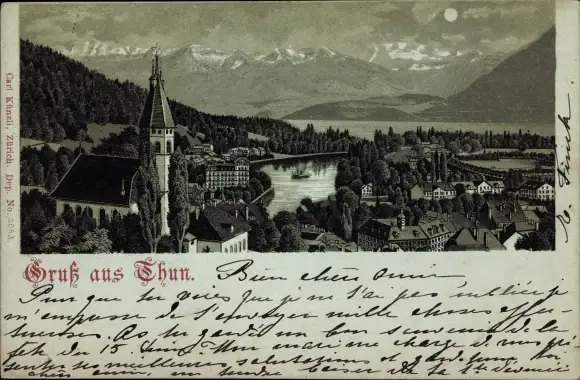 Carl Künzli, Zürich. Dep. No.
Gruß aus Thun.
Bien chère amie
Pour que tu voies que je ne t'ai pas oubliée je
m'empresse de t'envoyer mille choses affec-
tueuses. As tu gardé un bon souvenir de la
fête du 15 Mon mari me charge de vous pré-
senter ses meilleures salutations et
amie, un tendre baiser de la